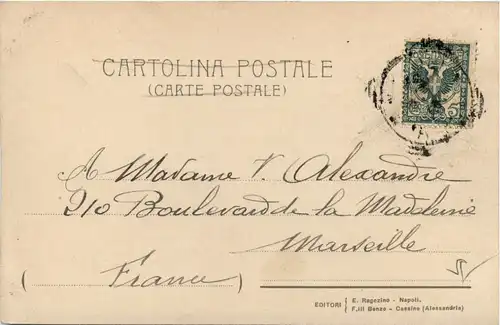 CARTOLINA POSTALE
(CARTE POSTALE)
5
A Madame V. Alexandre
210 Boulevard de la Madeleine
Marseille
(France)
EDITORI { E. Ragozino - Napoli.
F.lli Benzo - Cassine (Alessandria)